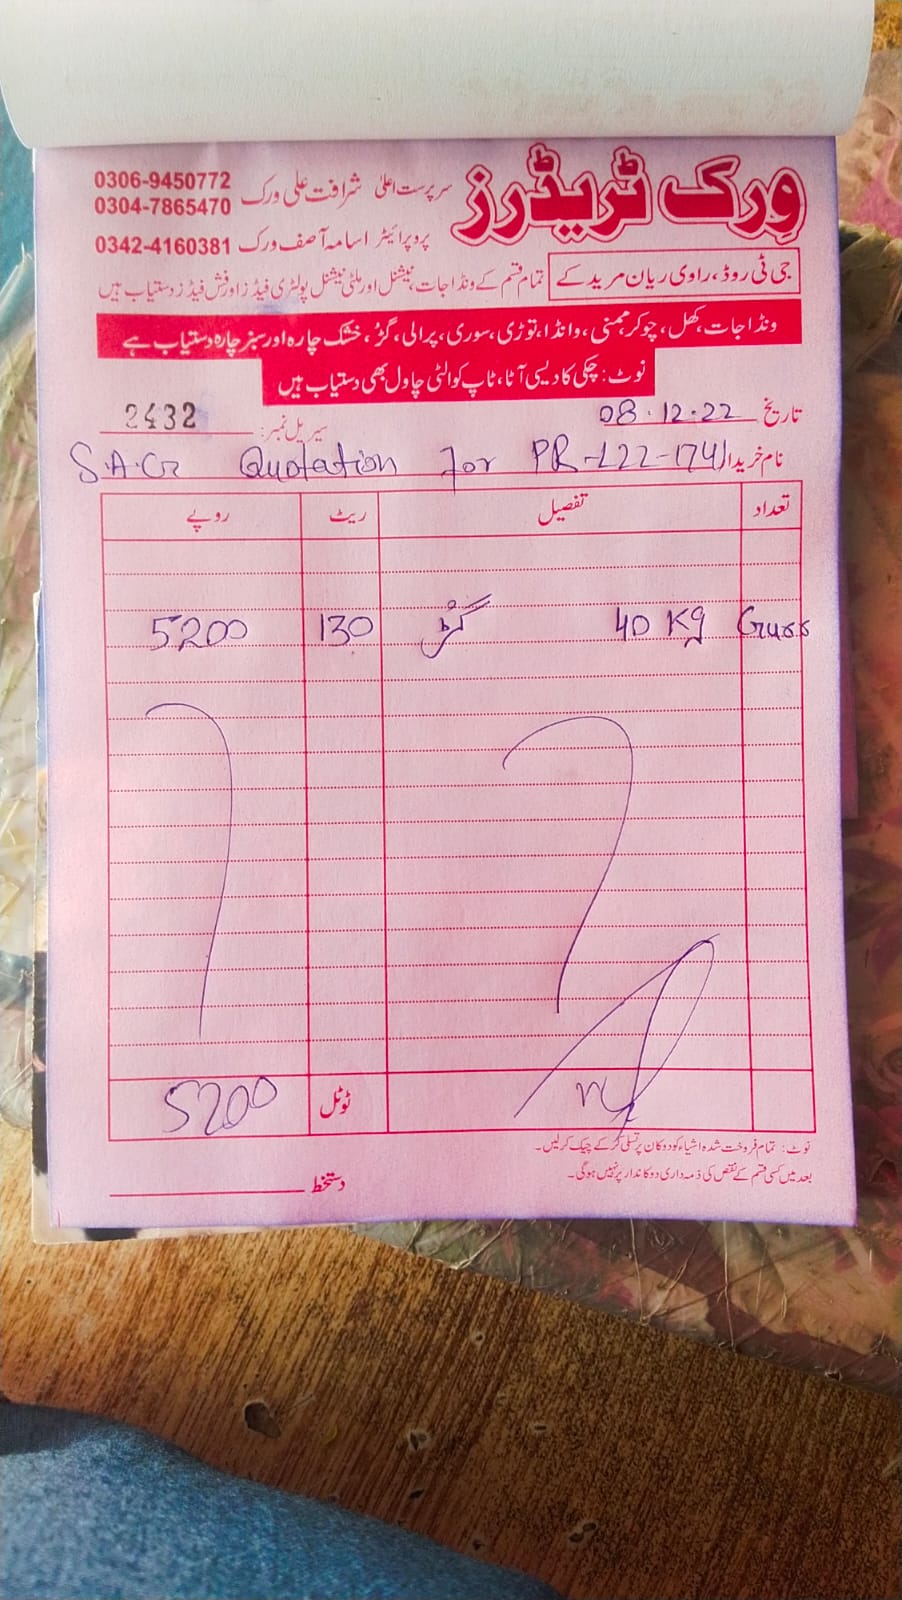 ورک ٹریڈرز
سرپرست اعلیٰ شرافت علی ورک 0306-9450772
0304-7865470
پروپرائیٹر اسامہ آصف ورک 0342-4160381
جی ٹی روڈ، راوی ریان مریدکے
تمام قسم کے ونڈا جات، نیشنل اور ملٹی نیشنل پولٹری فیڈز اور فش فیڈز دستیاب ہیں
ونڈا جات، کھل، چوکر، ممنی، وانڈا، توڑی، سوری، پرالی، گڑ، خشک چارہ اور سبز چارہ دستیاب ہے
نوٹ: چکی کا دیسی آٹا، ٹاپ کوالٹی چاول بھی دستیاب ہیں
تاریخ 08.12.22 سیریل نمبر: 2432
نام خریدار S.A.G Quotation for PR-122-1741
تعداد تفصیل ریٹ روپے
40 Kg گڑ 130 5200
ٹوٹل 5200
نوٹ: تمام فروخت شدہ اشیاء کو دوکان پر تسلی کر کے چیک کر لیں۔
بعد میں کسی قسم کے نقص کی ذمہ داری دوکاندار پر نہیں ہوگی۔
دستخط